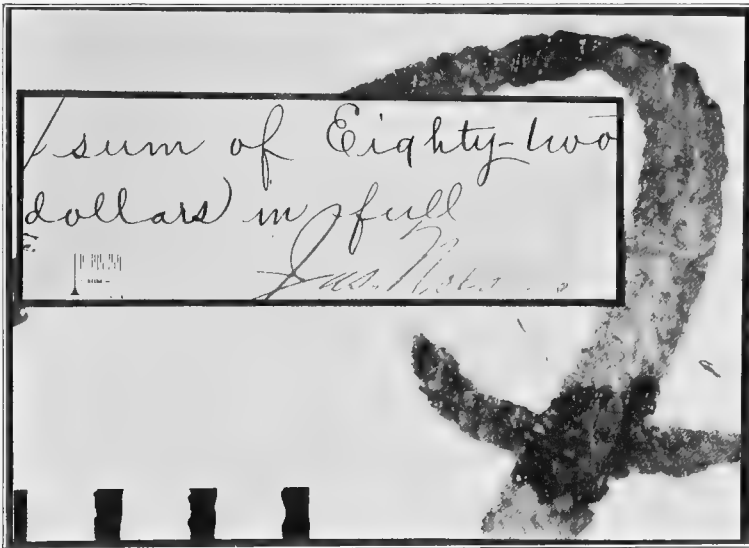 sum of Eighty-two
dollars) in full
Jas.